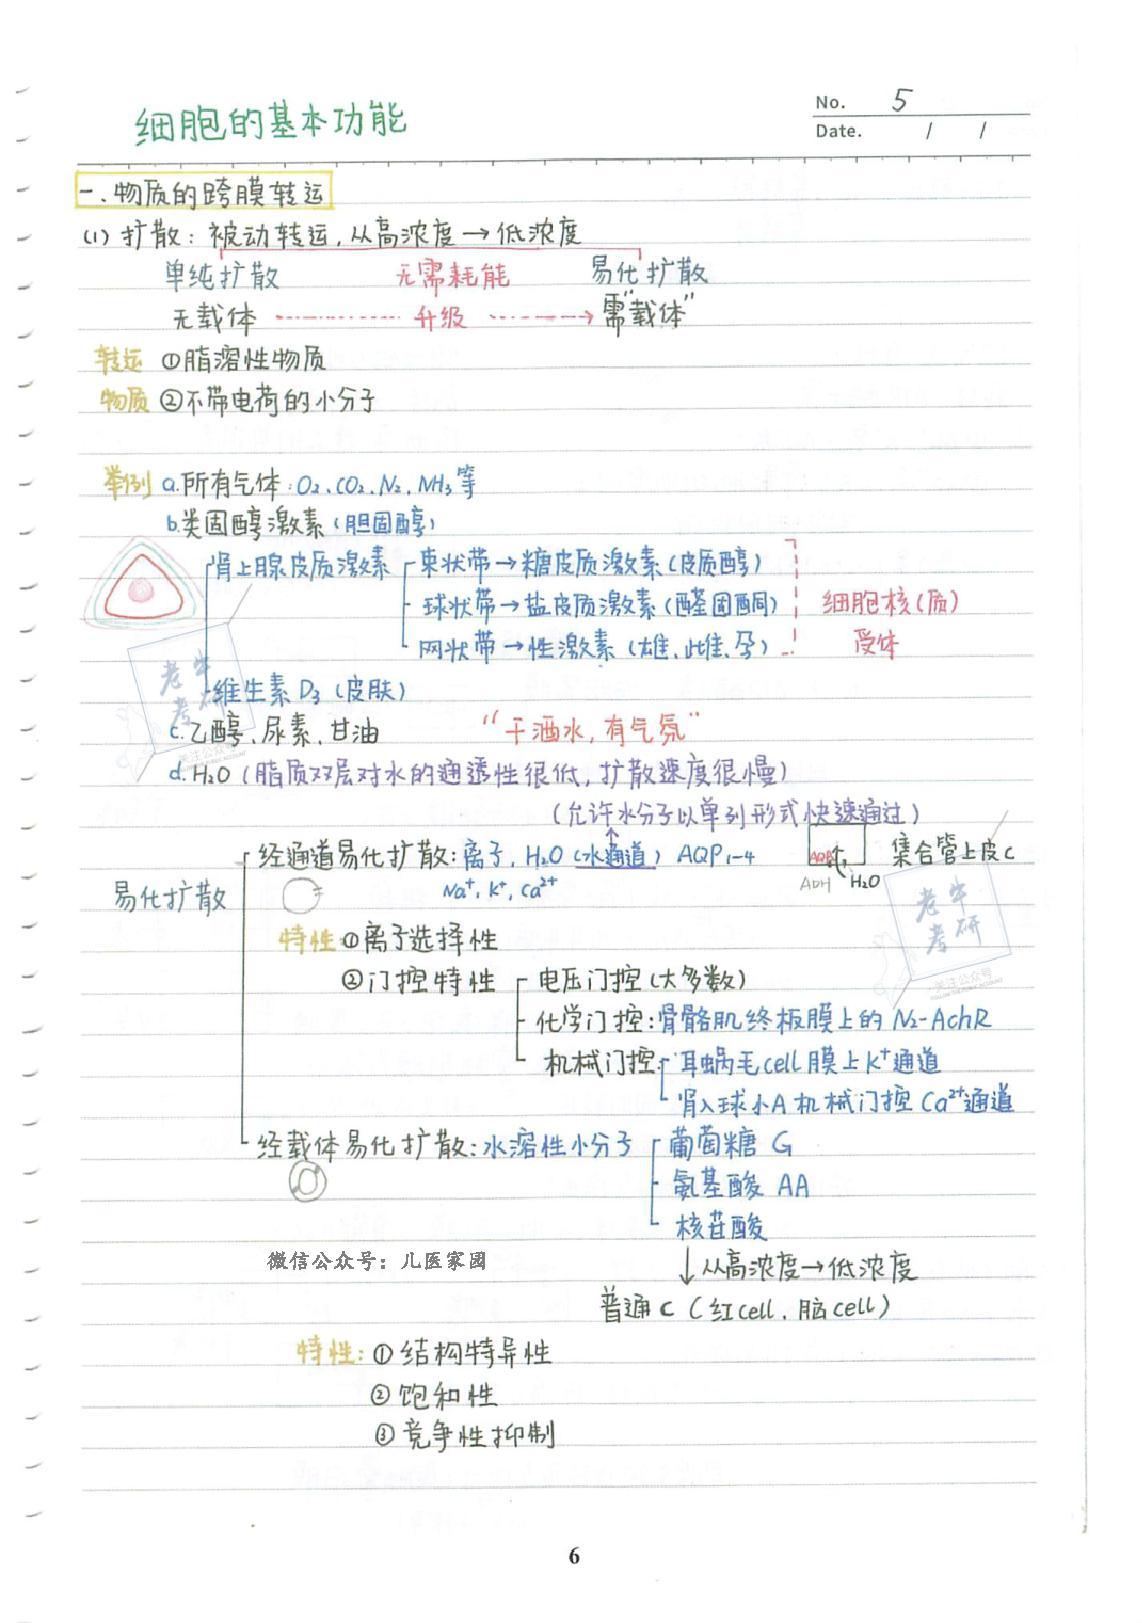 细胞的基本功能
No. 5
Date. / /
一、物质的跨膜转运
(1) 扩散: 被动转运, 从高浓度→低浓度
单纯扩散 无需耗能 易化扩散
无载体 升级 需"载体"
转运 ①脂溶性物质
物质 ②不带电荷的小分子
举例 a.所有气体: O₂、CO₂、N₂、NH₃等
b.类固醇激素(胆固醇)
肾上腺皮质激素 束状带→糖皮质激素(皮质醇)
球状带→盐皮质激素(醛固酮) 细胞核(质)
网状带→性激素(雄、雌、孕) 受体
维生素D₃(皮肤)
c.乙醇、尿素、甘油 "干洒水,有气氛"
d.H₂O(脂质双层对水的通透性很低,扩散速度很慢)
(允许水分子以单列形式快速通过)
经通道易化扩散: 离子, H₂O(水通道) AQP₁₋₄ AQP 集合管上皮C
ADH H₂O
易化扩散 Na⁺, K⁺, Ca²⁺
特性: ①离子选择性
②门控特性 电压门控(大多数)
化学门控: 骨骼肌终板膜上的N₂-AchR
机械门控: 耳蜗毛cell膜上K⁺通道
肾入球小A机械门控Ca²⁺通道
经载体易化扩散: 水溶性小分子 葡萄糖 G
氨基酸 AA
核苷酸
微信公众号：儿医家园
↓从高浓度→低浓度
普通C(红cell、脑cell)
特性: ①结构特异性
②饱和性
③竞争性抑制
老牛
考研
关注公众号
老牛
考研
关注公众号
6